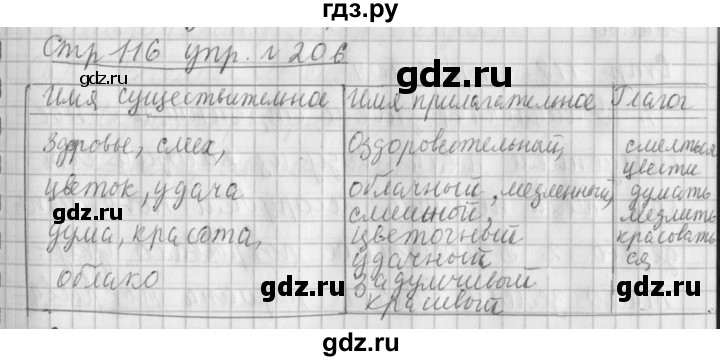 гдз.ру
Стр 116 упр. № 206
gdz.ru gdz.ru
Имя существительное Имя прилагательное Глагог
Здоровье, смех, Оздоровительный, смеяться
цвести
цветок, удача облачный, медленный, думать
смешной, медлить
дума, красота, цветочный красовать
удачный ся
gdz.ru gdz.ru
облако Задумчивый
красивый
gdz.ru gdz.ru
gdz.ru